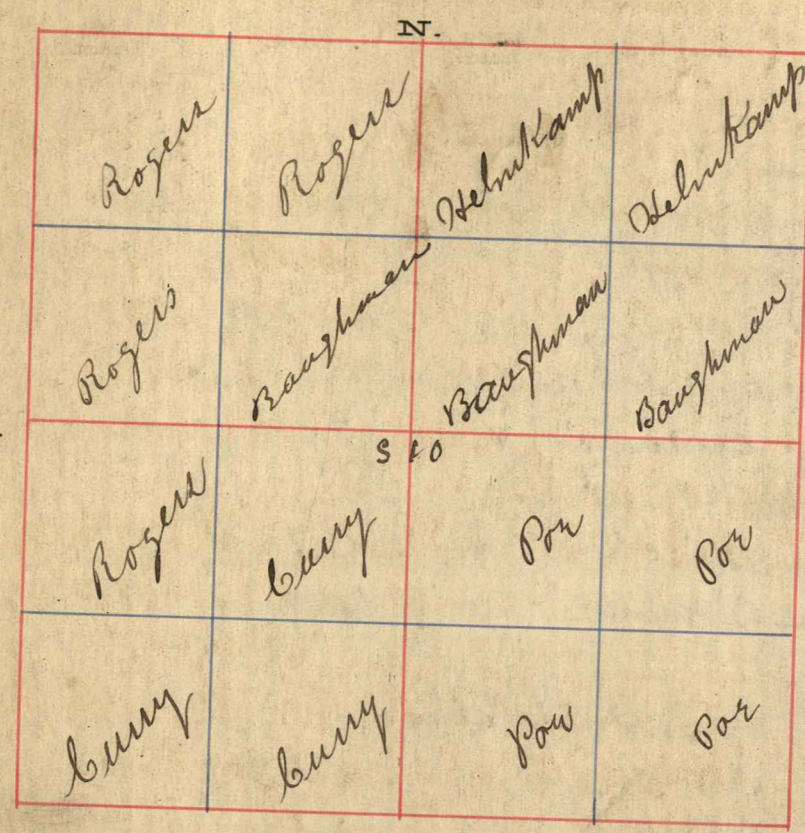 N.
Rogers Rogers Helmkamp Helmkamp
Rogers Baughman Baughman Baughman
Rogers Curry Poe Poe
Curry Curry Poe Poe